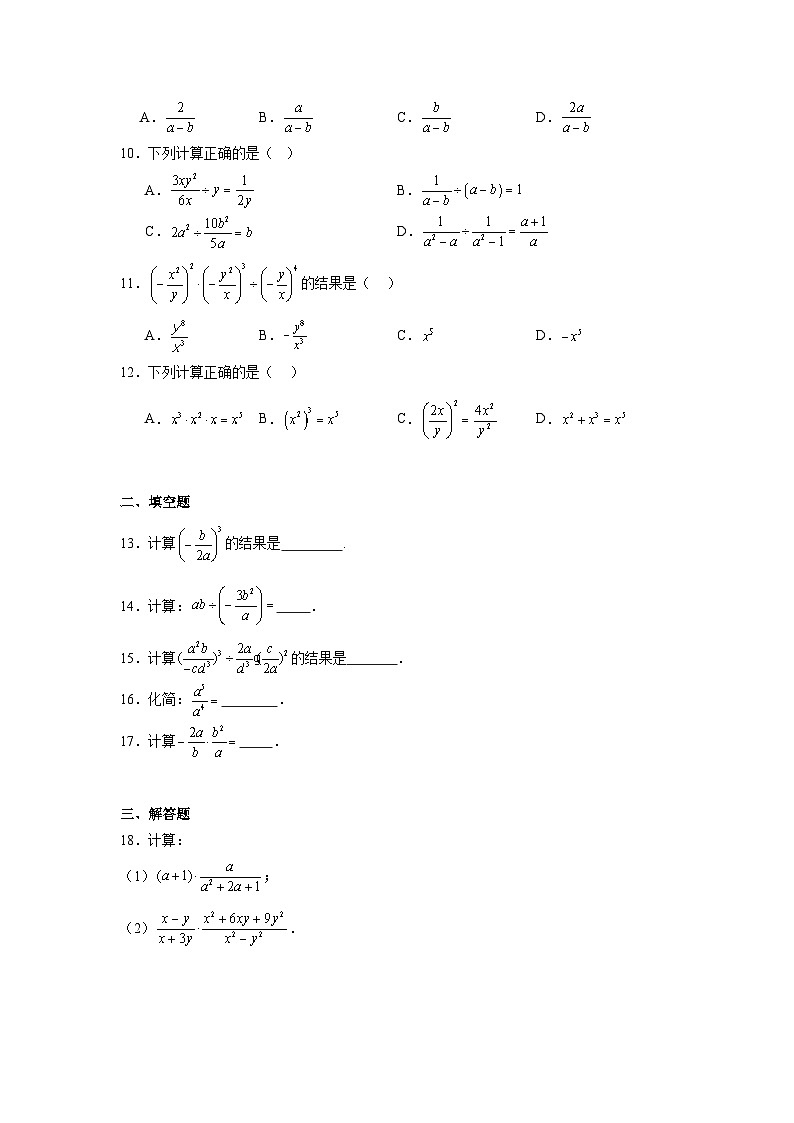 A．$\frac{2}{a-b}$ B．$\frac{a}{a-b}$ C．$\frac{b}{a-b}$ D．$\frac{2a}{a-b}$
10．下列计算正确的是（ ）
A．$\frac{3xy^2}{6x}\div y=\frac{1}{2y}$ B．$\frac{1}{a-b}\div(a-b)=1$
C．$2a^2\div\frac{10b^2}{5a}=b$ D．$\frac{1}{a^2-a}\div\frac{1}{a^2-1}=\frac{a+1}{a}$
11．$\left(-\frac{x^2}{y}\right)^2\cdot\left(-\frac{y^2}{x}\right)^3\div\left(-\frac{y}{x}\right)^4$的结果是（ ）
A．$\frac{y^8}{x^3}$ B．$-\frac{y^8}{x^3}$ C．$x^5$ D．$-x^5$
12．下列计算正确的是（ ）
A．$x^3\cdot x^2\cdot x=x^5$ B．$(x^2)^3=x^5$ C．$\left(\frac{2x}{y}\right)^2=\frac{4x^2}{y^2}$ D．$x^2+x^3=x^5$
二、填空题
13．计算$\left(-\frac{b}{2a}\right)^3$的结果是________.
14．计算：$ab\div\left(-\frac{3b^2}{a}\right)=$____．
15．计算$(\frac{a^2b}{-cd^3})^3\div\frac{2a}{d^3}(\frac{c}{2a})^2$的结果是______．
16．化简：$\frac{a^5}{a^4}=$_______．
17．计算$-\frac{2a}{b}\cdot\frac{b^2}{a}=$____．
三、解答题
18．计算：
（1）$(a+1)\cdot\frac{a}{a^2+2a+1}$；
（2）$\frac{x-y}{x+3y}\cdot\frac{x^2+6xy+9y^2}{x^2-y^2}$．